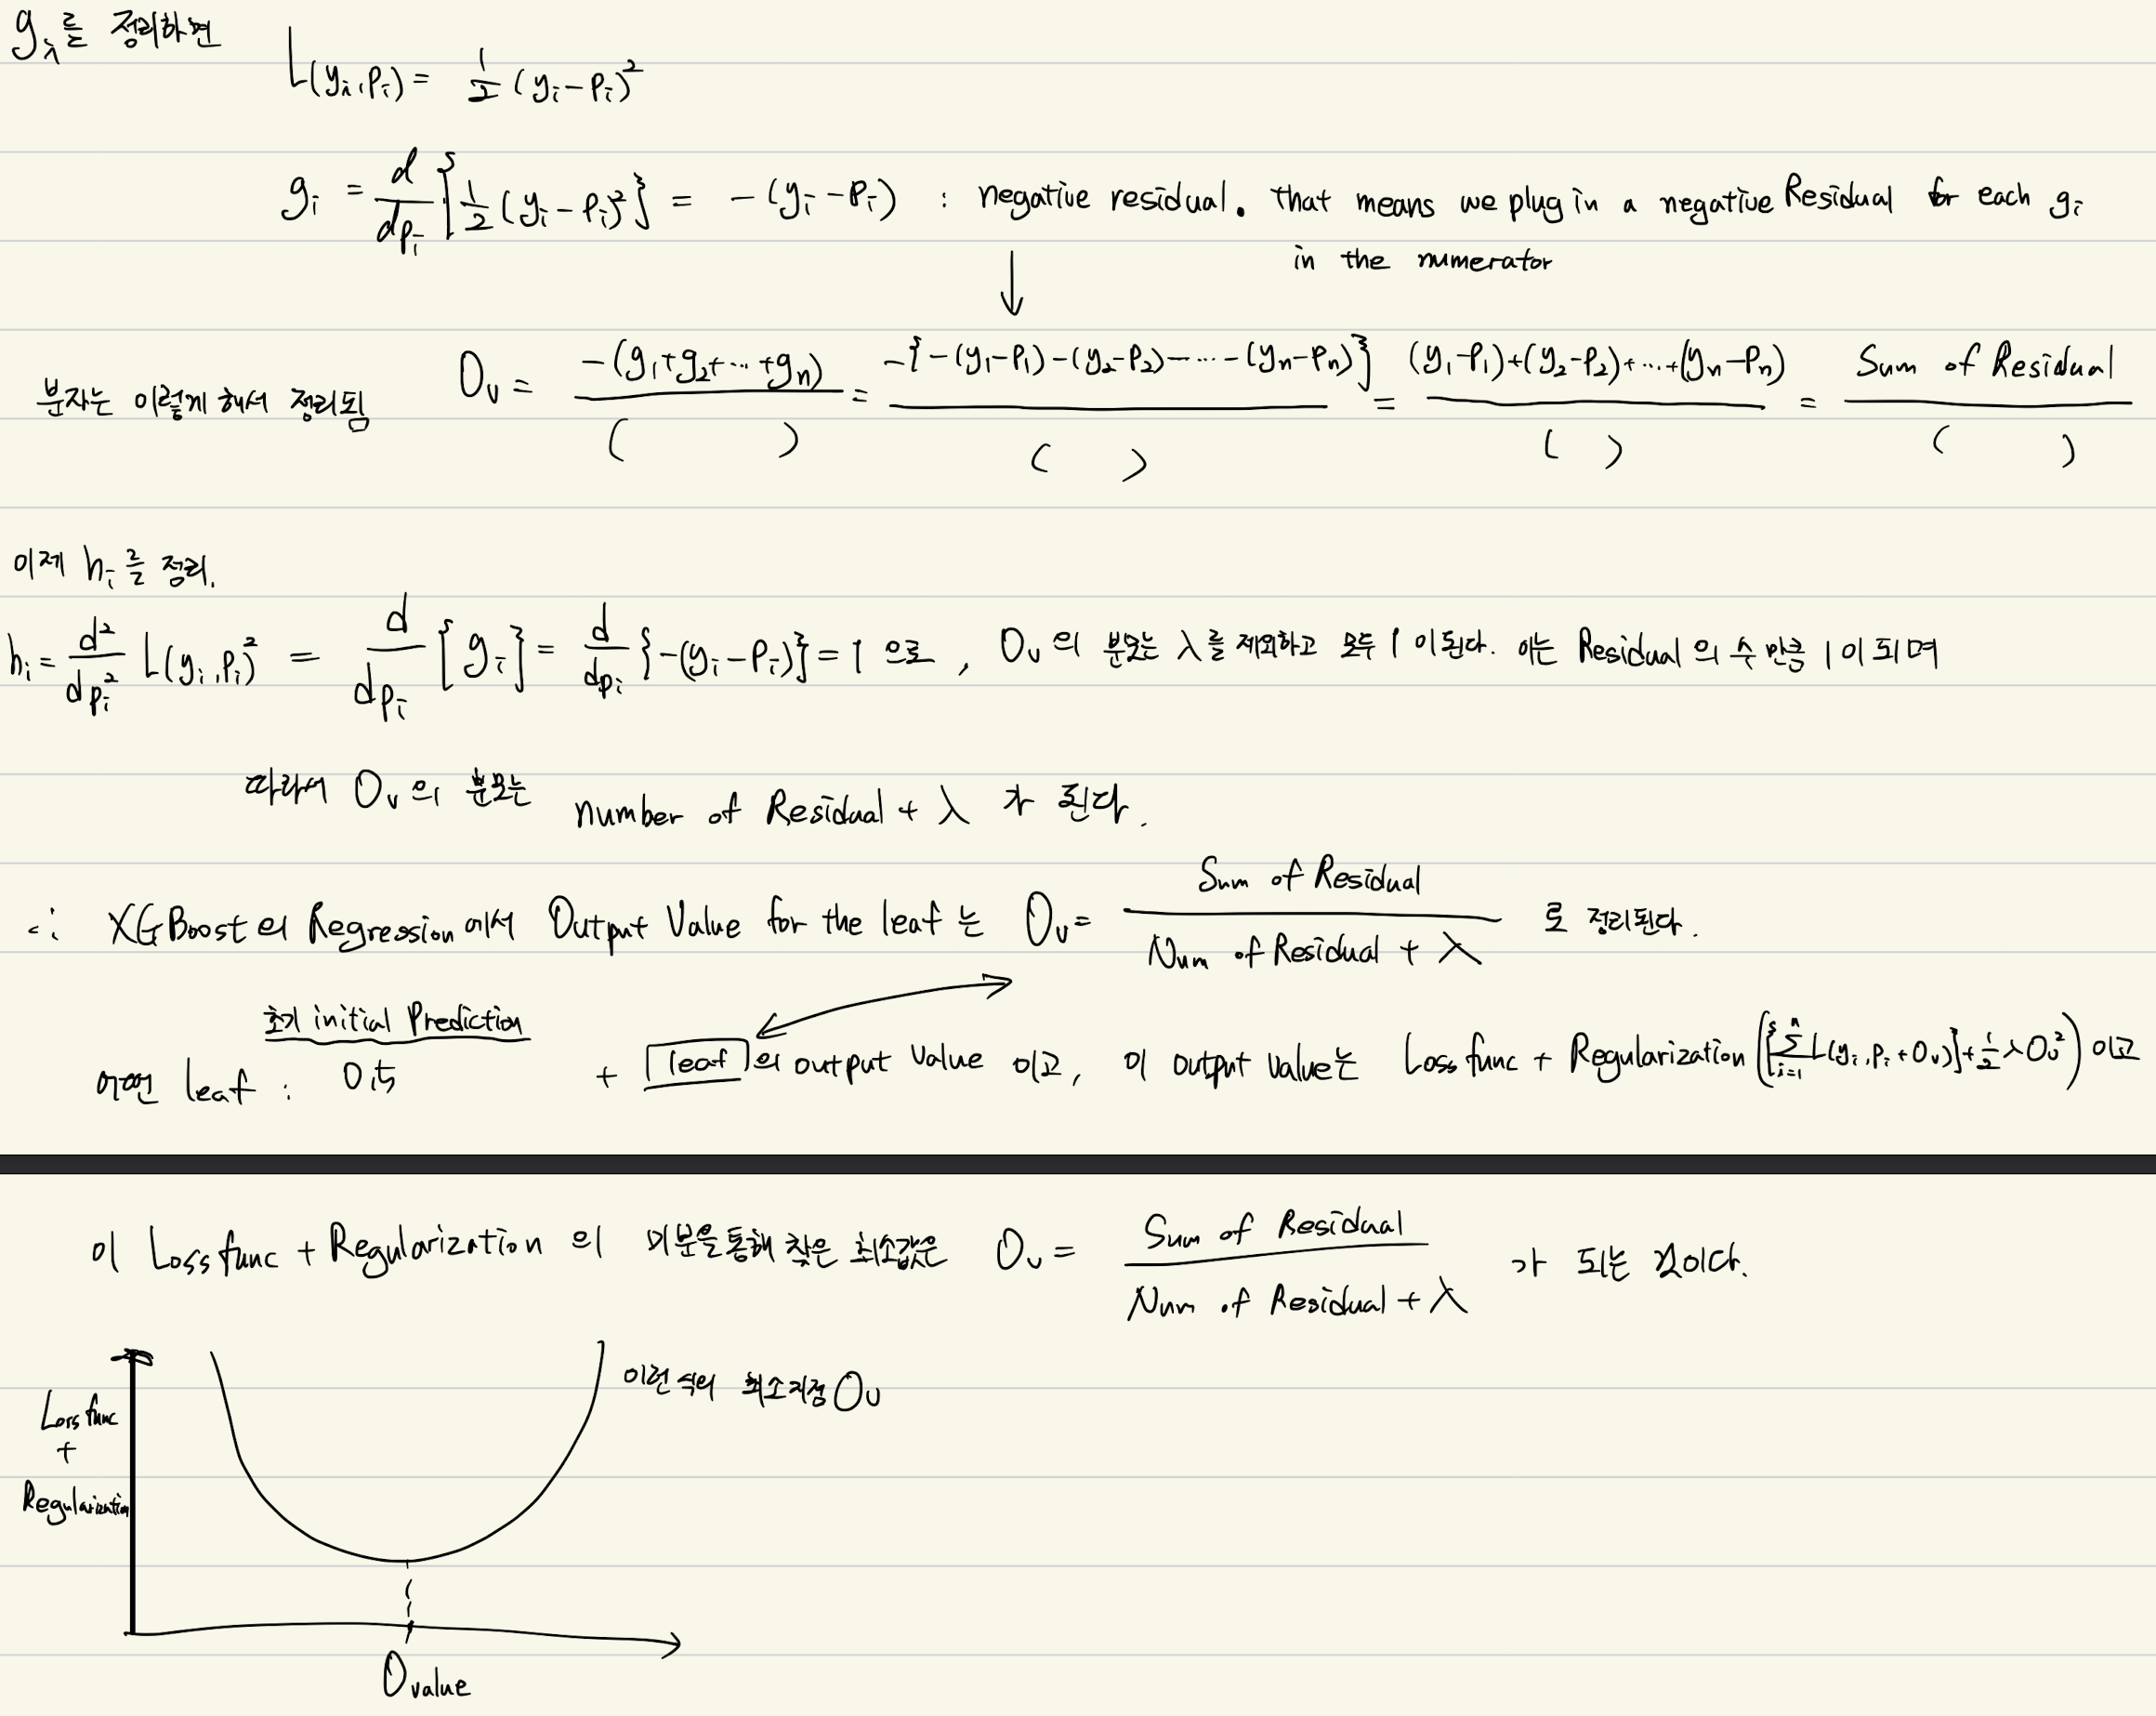 g_i를 정리하면
L(y_i, p_i) = 1/2 (y_i - p_i)^2
g_i = d/dp_i {1/2 (y_i - p_i)^2} = -(y_i - p_i) : negative residual. that means we plug in a negative Residual for each g_i
in the numerator
↓
분자는 이렇게 해서 정리됨 O_v = -(g_1+g_2+...+g_n) / ( ) = -{-(y_1-p_1)-(y_2-p_2)-...-(y_n-p_n)} / ( ) = (y_1-p_1)+(y_2-p_2)+...+(y_n-p_n) / ( ) = Sum of Residual / ( )
이제 h_i를 정리.
h_i = d^2/dp_i^2 L(y_i, p_i)^2 = d/dp_i [g_i] = d/dp_i {-(y_i-p_i)} = 1 으로, O_v의 분모는 λ를 제외하고 모두 1이 된다. 이는 Residual의 수 만큼 1이 되며
따라서 O_v의 분모는 number of Residual + λ 가 된다.
∴ XGBoost의 Regression에서 Output Value for the leaf 는 O_v = Sum of Residual / Num of Residual + λ 로 정리된다.
초기 initial Prediction
어떤 leaf : 0.5 + leaf의 output value 이고, 이 output value는 Loss func + Regularization ({∑_{i=1}^{n} L(y_i, p_i + O_v)} + 1/2 λO_v^2) 이고
이 Loss func + Regularization 의 미분을 통해 찾은 최소값은 O_v = Sum of Residual / Num of Residual + λ 가 되는 것이다.
이런 식의 최소지점 O_v
Loss func
+
Regularization
O_value